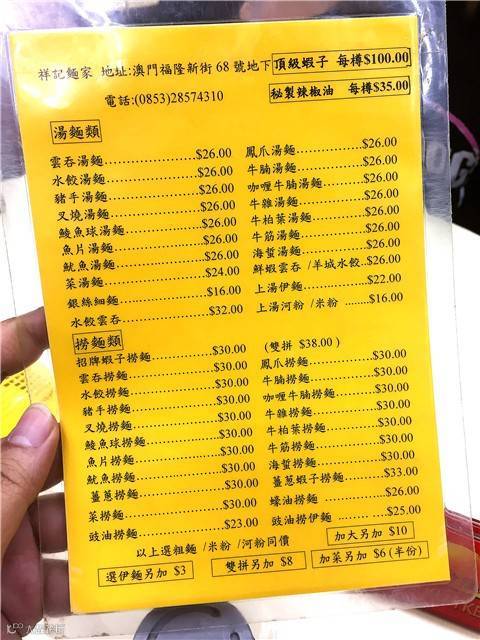 祥記麵家 地址:澳門福隆新街 68 號地下
電話:(0853)28574310
頂級蝦子 每樽$100.00
秘製辣椒油 每樽$35.00
湯麵類
雲吞湯麵......................$26.00
水餃湯麵......................$26.00
豬手湯麵......................$26.00
叉燒湯麵......................$26.00
鯪魚球湯麵..................$26.00
魚片湯麵......................$26.00
魷魚湯麵......................$26.00
菜湯麵..........................$24.00
銀絲細麵......................$16.00
水餃雲吞......................$32.00
鳳爪湯麵..................$26.00
牛腩湯麵..................$26.00
咖喱牛腩湯麵..........$26.00
牛雜湯麵..................$26.00
牛柏葉湯麵..............$26.00
牛筋湯麵..................$26.00
海蜇湯麵..................$26.00
鮮蝦雲吞 /羊城水餃..$26.00
上湯伊麵..................$22.00
上湯河粉 /米粉 ........$16.00
撈麵類
招牌蝦子撈麵................$30.00
雲吞撈麵......................$30.00
水餃撈麵......................$30.00
豬手撈麵......................$30.00
叉燒撈麵......................$30.00
鯪魚球撈麵..................$30.00
魚片撈麵......................$30.00
魷魚撈麵......................$30.00
薑蔥撈麵......................$30.00
菜撈麵..........................$30.00
豉油撈麵......................$23.00
(雙拼 $38.00 )
鳳爪撈麵..................$30.00
牛腩撈麵..................$30.00
咖喱牛腩撈麵..........$30.00
牛雜撈麵..................$30.00
牛柏葉撈麵..............$30.00
牛筋撈麵..................$30.00
海蜇撈麵..................$30.00
薑蔥蝦子撈麵..........$33.00
蠔油撈麵 ................$26.00
豉油撈伊麵 ............$25.00
以上選粗麵 /米粉 /河粉同價
加大另加 $10
選伊麵另加 $3
雙拼另加 $8
加菜另加 $6 (半份)